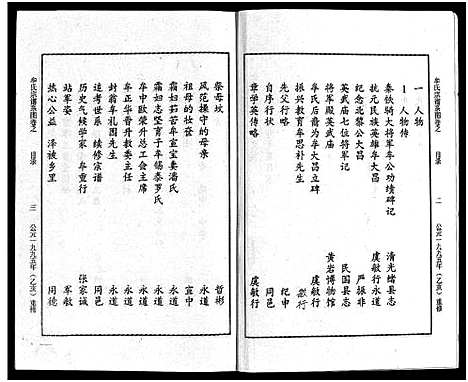 牟氏宗谱系图卷之 目录 二 公元一九九五年(乙亥)重修
一 人物
1 人物传
秦铁骑大将军牟公功绩碑记 清光绪县志
抗元民族英雄牟大昌 虞敏行 永道
纪念北黎公大昌 严振非
英武庙七位将军记 民国县志
将军殿英武庙 黄岩博物馆
牟氏后裔为牟大昌立碑 虞敏行
振兴教育牟思朴先生
先父行略 纪中
自序行状 周邑
章学英传略 虞敏行
祭母坟 哲彬
风范操守的母亲 永道
祖母的妆奁 宜中
霜妇茹苦牟宣宝妻潘氏 永道
霜妇志坚育子牟锡泰罗氏 永道
牟中欧荣升总工会主席 永道
牟正华晋升教委主任 永道
封翁牟礼园先生 永道
追考世系 续修宗谱 周邑
历史气候学家 牟重行 张家诚
站军姿 军敏
热心公益 泽被乡里 周德
牟氏宗谱系图卷之 目录 三 公元一九九五年(乙亥)重修